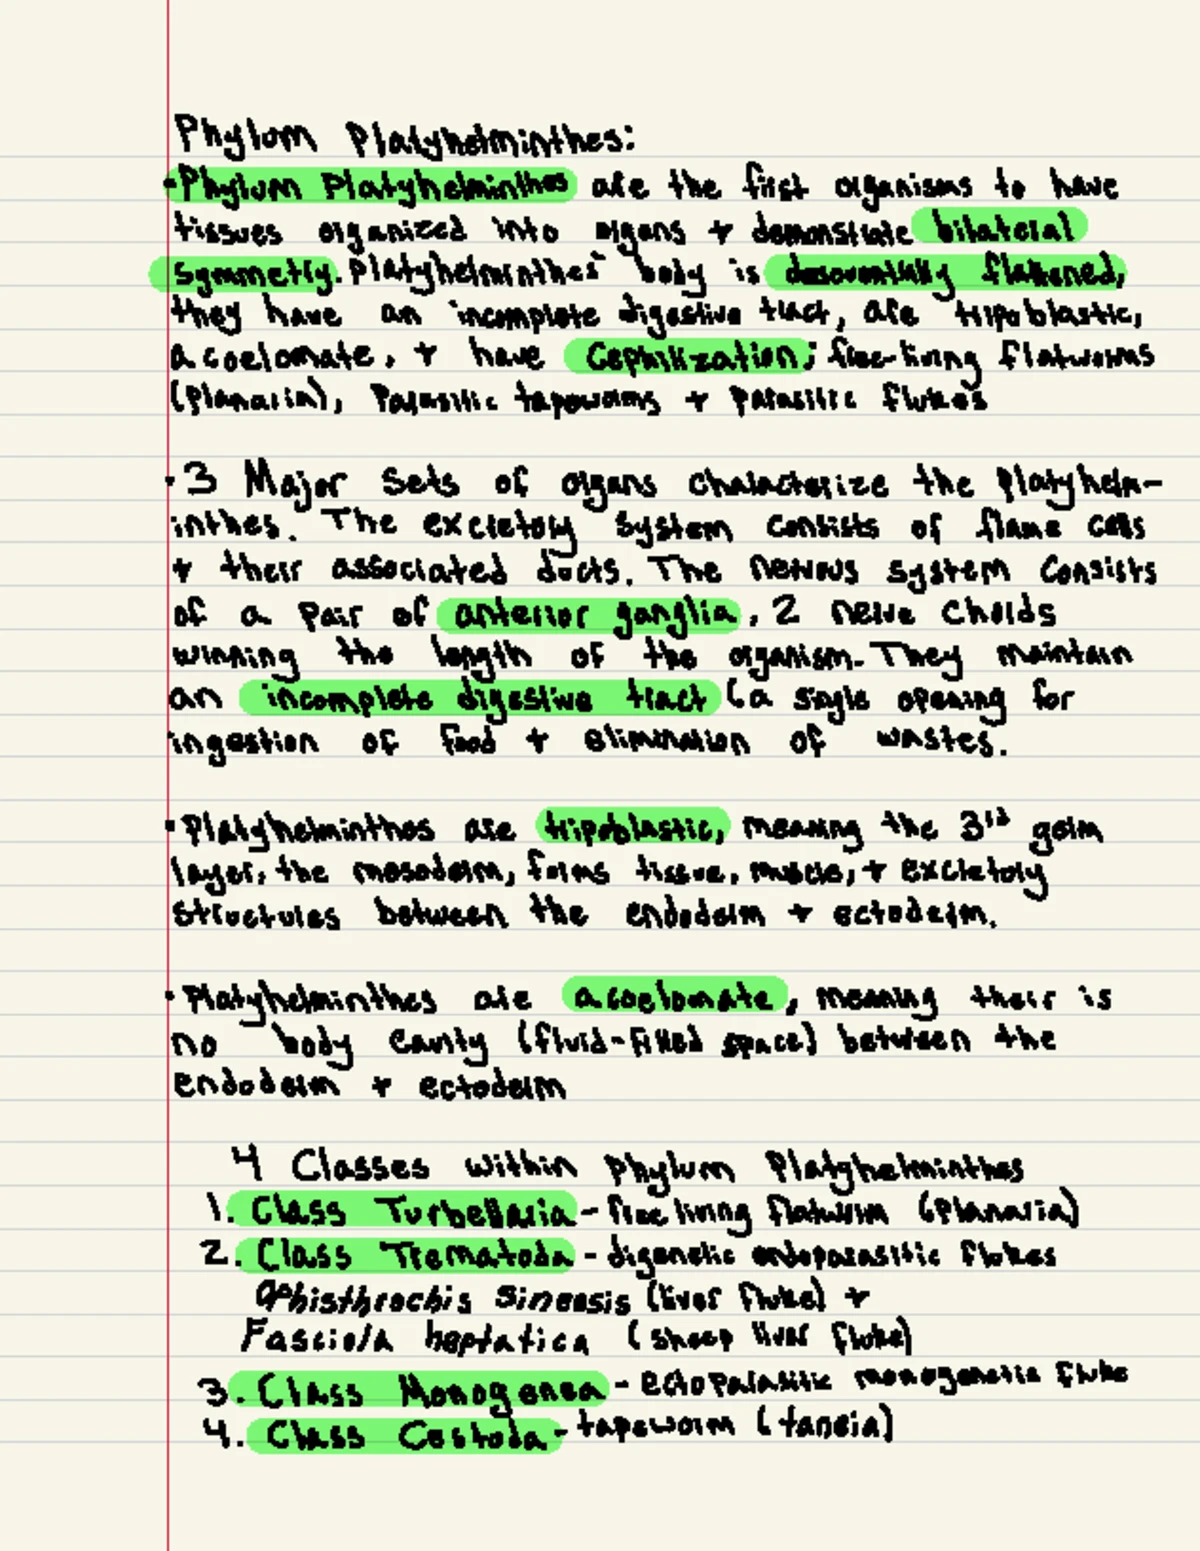 Phylum Platyhelminthes:
• Phylum Platyhelminthes are the first organisms to have
tissues organized into organs + demonstrate bilateral
symmetry. Platyhelminthes' body is flattened,
they have an incomplete digestive tract, are tripoblastic,
acoelomate, + have Cephilization; free-living flatworms
(Planaria), Parasitic tapeworms + parasitic flukes
• 3 Major Sets of organs characterize the Platyhelm-
inthes. The excretory system consists of flame cells
+ their associated ducts. The nervous system consists
of a pair of anterior ganglia, 2 nerve chords
winning the length of the organism. They maintain
an incomplete digestive tract (a single opening for
ingestion of food + elimination of wastes.
• Platyhelminthes are tripoblastic, meaning the 3rd germ
layer, the mesoderm, forms tissue, muscle, + excretory
structures between the endoderm + ectoderm.
• Platyhelminthes are acoelomate, meaning their is
no body cavity (fluid-filled space) between the
endoderm + ectoderm
4 Classes within Phylum Platyhelminthes
1. Class Turbellaria - free living flatworm (Planaria)
2. Class Trematoda - digenetic endoparasitic flukes
Ophisthrochis sinensis (liver fluke) +
Fasciola heptatica (sheep liver fluke)
3. Class Monogenea - ectoparasitic monogenetic fluke
4. Class Cestoda - tapeworm (taneia)